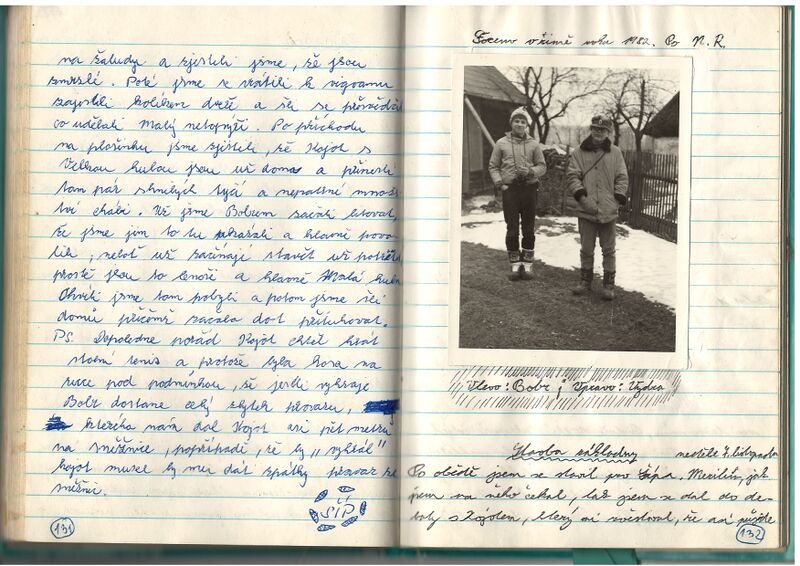 na žaludy a zjistili jsme, že jsou
zmrzlé. Poté jsme se vrátili k vigvamu
zajistili kolíkem dveře a šli se přesvědčit
co udělali Malý netopýři. Po příchodu
na plošinku jsme zjistili, že Kojot s
Velkou hubou jsou už doma a přinesli
tam pár shnilých tyčí a nepatrné množs
tví chábí. Už jsme Bobrem začali litovat,
že jsme jim to tu ukázali a hlavně povo
lili, neboť už začínají stavět už potřetí
prostě jsou to lenoši a hlavně Malá huba
Chvíli jsme tam pobyli a potom jsme šli
domů přičemž začalo dost přituhovat.
PS. Dopoledne pořád Kojot chtěl hrát
stolní tenis a protože byla hora na
pod podmínkou, že jestli vyhraje
Bobr dostane celý zbytek provazu,
kterého nám dal Kojot asi pět metrů
na sněžnice, popřípadě, že by "vyhrál"
kojot musel by mu dát zpátky provaz ze
sněžnic.
ŠÍP
131
Foceno v zimě roku 1982. Po N.R.
Vlevo: Bobr; Vpravo: Vydra
Stavba základny neděle 7. listopadu
Po obědě jsem se stavil pro Šípa. Mezitím, jak
jsem na něho čekal, tak jsem se dal do de-
baty s Kojotem, který mi zvěstoval, že asi půjde
132